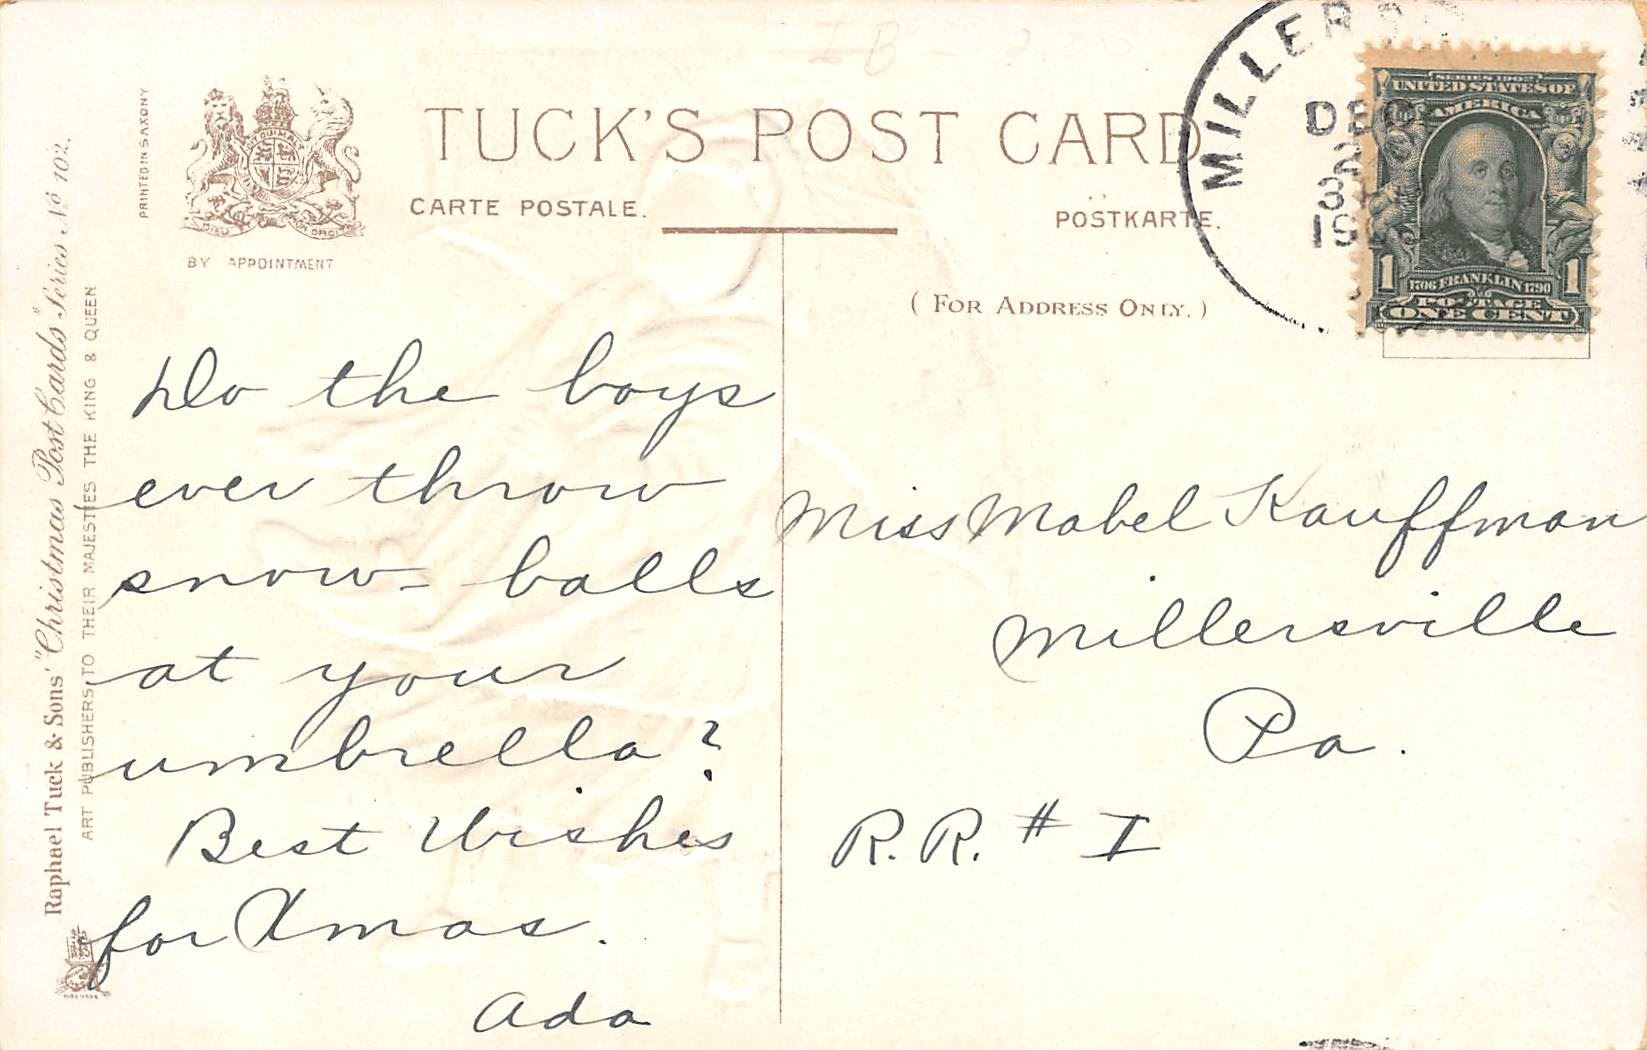 PRINTED IN SAXONY
BY APPOINTMENT
TUCK'S POST CARD
CARTE POSTALE.
POSTKARTE.
(FOR ADDRESS ONLY.)
Raphael Tuck & Sons' "Christmas Post Cards" Series No 102.
ART PUBLISHERS TO THEIR MAJESTIES THE KING & QUEEN
DEC
SERIES 1902
UNITED STATES OF
AMERICA
1 1
1706 FRANKLIN 1790
POSTAGE
ONE CENT
Do the boys
ever throw
snow-balls
at your
umbrella?
Best Wishes
for Xmas.
Ada
Miss Mabel Kauffman
Millersville
Pa.
R.R. # I